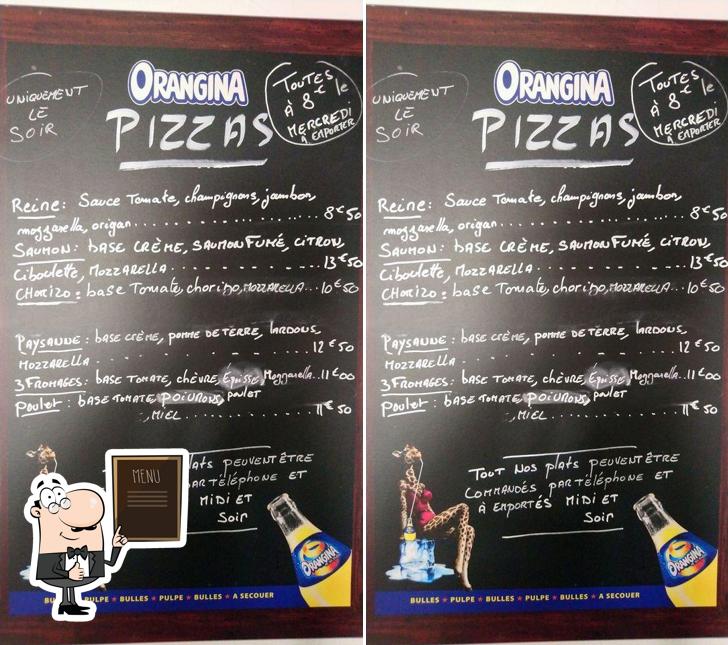 UNIQUEMENT
LE
SOIR
ORANGINA
PIZZAS
TOUTES
À 8€ le
MERCREDI
A EMPORTER
Reine : Sauce Tomate, champignons, jambon,
mozzarella, origan .......... 8€50
SAUMON : bASE CRÈME, SAUMON FUMÉ, CITRON,
Ciboulette, MOZZARELLA .......... 13€50
CHORIZO : base Tomate, chorizo, MOZZARELLA... 10€50
PAYSANNE : base CRÈME, POMME DE TERRE, LARDONS,
MOZZARELLA .......... 12€50
3 FROMAGES : bASE TOMATE, CHÈVRE, Époisse, Mozzarella... 11€00
Poulet : bASE TOMATE, POIVRONS, poulet
, MIEL .......... 11€50
plats PEUVENT ÊTRE
PAR TÉLÉPHONE ET
MIDI ET
SOIR
MENU
ORANGINA
PULPE ★ BULLES ★ PULPE ★ BULLES ★ A SECOUER
UNIQUEMENT
LE
SOIR
ORANGINA
PIZZAS
TOUTES
À 8€ le
MERCREDI
A EMPORTER
Reine : Sauce Tomate, champignons, jambon,
mozzarella, origan .......... 8€50
SAUMON : bASE CRÈME, SAUMON FUMÉ, CITRON,
Ciboulette, MOZZARELLA .......... 13€50
CHORIZO : base Tomate, chorizo, MOZZARELLA... 10€50
PAYSANNE : base CRÈME, POMME DE TERRE, LARDONS,
MOZZARELLA .......... 12€50
3 FROMAGES : bASE TOMATE, CHÈVRE, Époisse, Mozzarella... 11€00
Poulet : bASE TOMATE, POIVRONS, poulet
, MIEL .......... 11€50
TOUT NOS plats PEUVENT ÊTRE
COMMANDÉS PAR TÉLÉPHONE ET
À EMPORTÉS MIDI ET
SOIR
ORANGINA
BULLES ★ PULPE ★ BULLES ★ PULPE ★ BULLES ★ A SECOUER